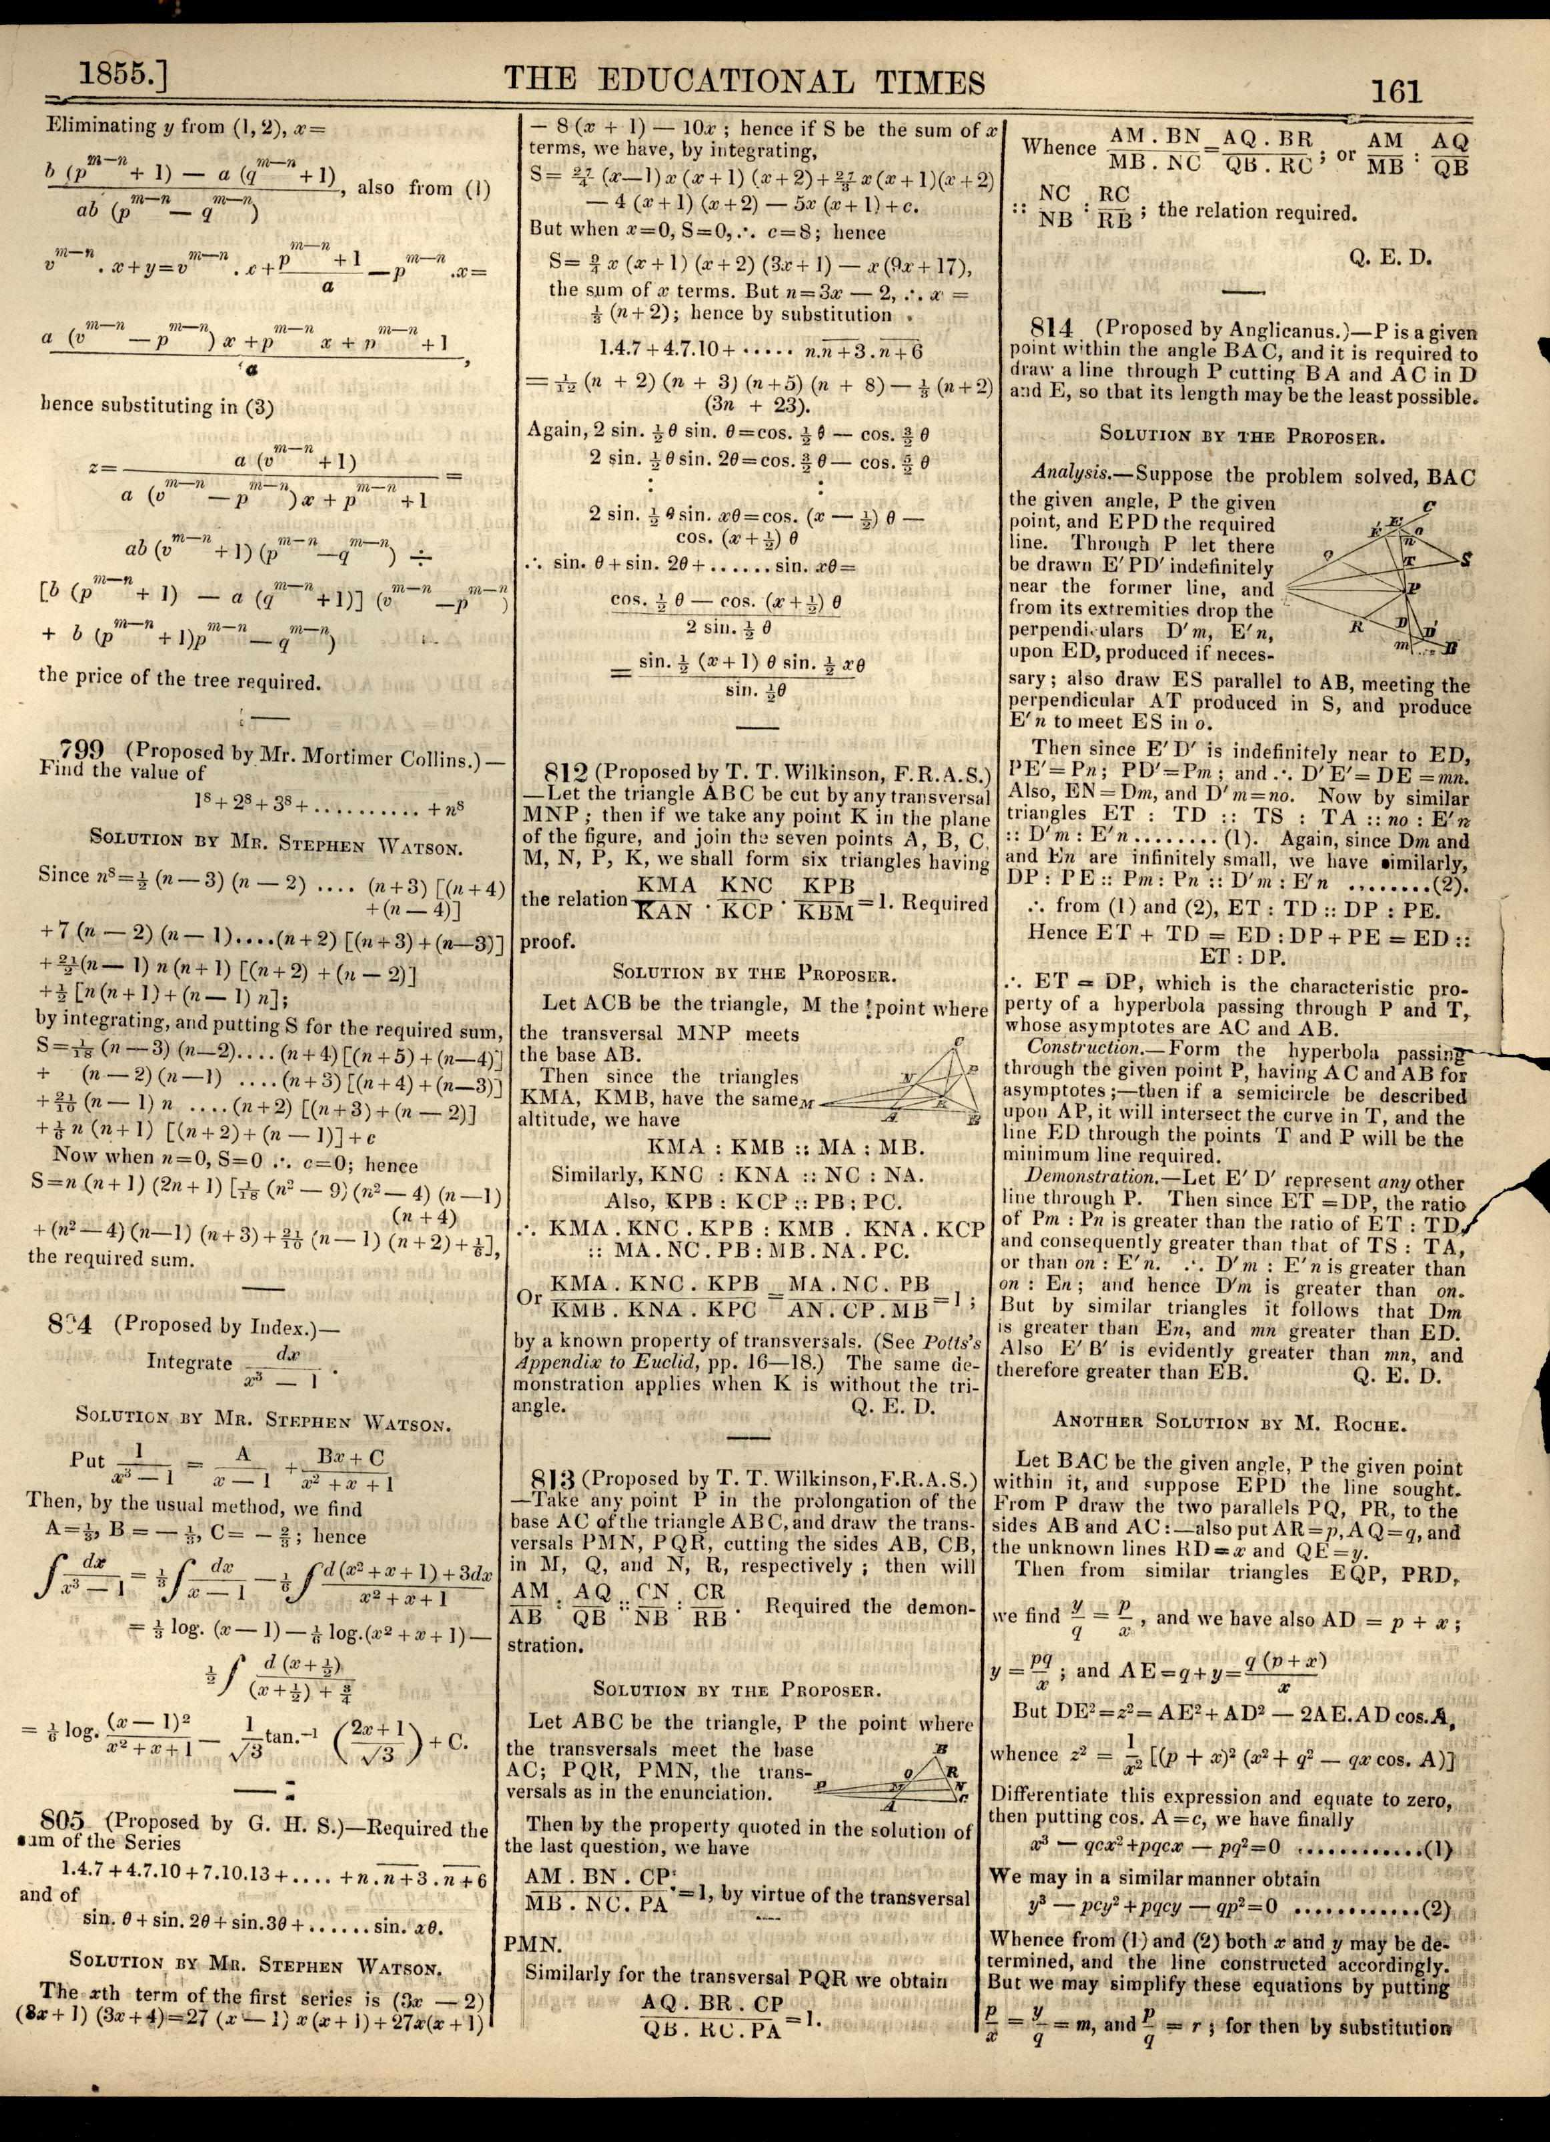 1855.]
THE EDUCATIONAL TIMES
161
Eliminating y from (1, 2), x=
b (p^{m—n} + 1) — a (q^{m—n} + 1) / ab (p^{m—n} — q^{m—n}), also from (1)
v^{m—n} . x+y=v^{m—n} . x + p^{m—n} + 1 / a — p^{m—n} . x=
a (v^{m—n} — p^{m—n}) x + p^{m—n} x + p^{m—n} + 1 / a,
hence substituting in (3)
z= a (v^{m—n} + 1) / a (v^{m—n} — p^{m—n}) x + p^{m—n} + 1 =
ab (v^{m—n} + 1) (p^{m—n} — q^{m—n}) ÷
[b (p^{m—n} + 1) — a (q^{m—n} + 1)] (v^{m—n} — p^{m—n})
+ b (p^{m—n} + 1) p^{m—n} — q^{m—n})
the price of the tree required.
799 (Proposed by Mr. Mortimer Collins.)—
Find the value of
1⁸ + 2⁸ + 3⁸ + .......... + n⁸
SOLUTION BY MR. STEPHEN WATSON.
Since n⁸ = ½ (n — 3) (n — 2) .... (n + 3) [(n + 4)
+ (n — 4)]
+ 7 (n — 2) (n — 1)....(n + 2) [(n + 3) + (n—3)]
+ 21/2 (n — 1) n (n + 1) [(n + 2) + (n — 2)]
+ ½ [n (n + 1) + (n — 1) n];
by integrating, and putting S for the required sum,
S = 1/18 (n — 3) (n—2).... (n + 4) [(n + 5) + (n—4)]
+ (n — 2) (n—1) ....(n + 3) [(n + 4) + (n—3)]
+ 21/10 (n — 1) n ....(n + 2) [(n + 3) + (n — 2)]
+ 1/6 n (n + 1) [(n + 2) + (n — 1)] + c
Now when n=0, S=0 ∴ c=0; hence
S=n (n + 1) (2n + 1) [1/18 (n² — 9) (n² — 4) (n—1)
(n + 4)
+ (n² — 4) (n—1) (n + 3) + 21/10 (n — 1) (n + 2) + 1/6],
the required sum.
804 (Proposed by Index.)—
Integrate dx / x³ — 1 .
SOLUTION BY MR. STEPHEN WATSON.
Put 1 / x³ — 1 = A / x — 1 + Bx + C / x² + x + 1
Then, by the usual method, we find
A=⅓, B = — ⅓, C = — ⅔; hence
∫ dx / x³ — 1 = ⅓ ∫ dx / x — 1 — 1/6 ∫ d (x² + x + 1) + 3dx / x² + x + 1
= ⅓ log. (x — 1) — 1/6 log. (x² + x + 1) —
½ ∫ d (x + ½) / (x + ½) + ¾
= 1/6 log. (x — 1)² / x² + x + 1 — 1/√3 tan.⁻¹ (2x + 1 / √3) + C.
805 (Proposed by G. H. S.)—Required the
sum of the Series
1.4.7 + 4.7.10 + 7.10.13 + .... + n . n + 3 . n + 6
and of
sin. θ + sin. 2θ + sin. 3θ + ...... sin. xθ.
SOLUTION BY MR. STEPHEN WATSON.
The xth term of the first series is (3x — 2)
(3x + 1) (3x + 4) = 27 (x — 1) x (x + 1) + 27x (x + 1)
— 8 (x + 1) — 10x ; hence if S be the sum of x
terms, we have, by integrating,
S= 27/4 (x—1) x (x + 1) (x + 2) + 27/3 x (x + 1) (x + 2)
— 4 (x + 1) (x + 2) — 5x (x + 1) + c.
But when x=0, S=0, ∴ c=8; hence
S= 9/4 x (x + 1) (x + 2) (3x + 1) — x (9x + 17),
the sum of x terms. But n=3x — 2, ∴ x =
⅓ (n + 2); hence by substitution
1.4.7 + 4.7.10 + ..... n.n + 3 . n + 6
= 1/12 (n + 2) (n + 3) (n + 5) (n + 8) — ⅓ (n + 2)
(3n + 23).
Again, 2 sin. ½ θ sin. θ = cos. ½ θ — cos. 3/2 θ
2 sin. ½ θ sin. 2θ = cos. 3/2 θ — cos. 5/2 θ
: :
2 sin. ½ θ sin. xθ = cos. (x — ½) θ —
cos. (x + ½) θ
∴ sin. θ + sin. 2θ + ...... sin. xθ =
cos. ½ θ — cos. (x + ½) θ / 2 sin. ½ θ
= sin. ½ (x + 1) θ sin. ½ xθ / sin. ½θ
812 (Proposed by T. T. Wilkinson, F.R.A.S.)
—Let the triangle ABC be cut by any transversal
MNP ; then if we take any point K in the plane
of the figure, and join the seven points A, B, C,
M, N, P, K, we shall form six triangles having
the relation KMA / KAN . KNC / KCP . KPB / KBM = 1. Required
proof.
SOLUTION BY THE PROPOSER.
Let ACB be the triangle, M the point where
the transversal MNP meets
the base AB.
Then since the triangles
KMA, KMB, have the same
altitude, we have
C
N
P
M
K
A
B
KMA : KMB :: MA : MB.
Similarly, KNC : KNA :: NC : NA.
Also, KPB : KCP :: PB : PC.
∴ KMA . KNC . KPB : KMB . KNA . KCP
:: MA . NC . PB : MB . NA . PC.
Or KMA . KNC . KPB / KMB . KNA . KPC = MA . NC . PB / AN . CP . MB = 1 ;
by a known property of transversals. (See Potts's
Appendix to Euclid, pp. 16—18.) The same de-
monstration applies when K is without the tri-
angle. Q. E. D.
813 (Proposed by T. T. Wilkinson, F.R.A.S.)
—Take any point P in the prolongation of the
base AC of the triangle ABC, and draw the trans-
versals PMN, PQR, cutting the sides AB, CB,
in M, Q, and N, R, respectively ; then will
AM / AB : AQ / QB :: CN / NB : CR / RB . Required the demon-
stration.
SOLUTION BY THE PROPOSER.
Let ABC be the triangle, P the point where
the transversals meet the base
AC; PQR, PMN, the trans-
versals as in the enunciation.
B
Q
R
P
M
N
A
C
Then by the property quoted in the solution of
the last question, we have
AM . BN . CP / MB . NC . PA = 1, by virtue of the transversal
PMN.
Similarly for the transversal PQR we obtain
AQ . BR . CP / QB . RC . PA = 1.
Whence AM . BN / MB . NC = AQ . BR / QB . RC ; or AM / MB : AQ / QB
:: NC / NB : RC / RB ; the relation required.
Q. E. D.
814 (Proposed by Anglicanus.)—P is a given
point within the angle BAC, and it is required to
draw a line through P cutting BA and AC in D
and E, so that its length may be the least possible.
SOLUTION BY THE PROPOSER.
Analysis.—Suppose the problem solved, BAC
the given angle, P the given
point, and EPD the required
line. Through P let there
be drawn E′PD′ indefinitely
near the former line, and
from its extremities drop the
perpendiculars D′m, E′n,
upon ED, produced if neces-
C
E′
E
o
n
Q
T
S
P
R
D
D′
m
B
sary ; also draw ES parallel to AB, meeting the
perpendicular AT produced in S, and produce
E′n to meet ES in o.
Then since E′D′ is indefinitely near to ED,
PE′ = Pn ; PD′ = Pm ; and ∴ D′E′ = DE = mn.
Also, EN = Dm, and D′m = no. Now by similar
triangles ET : TD :: TS : TA :: no : E′n
:: D′m : E′n ........ (1). Again, since Dm and
and En are infinitely small, we have similarly,
DP : PE :: Pm : Pn :: D′m : E′n ........(2).
∴ from (1) and (2), ET : TD :: DP : PE.
Hence ET + TD = ED : DP + PE = ED ::
ET : DP.
∴ ET = DP, which is the characteristic pro-
perty of a hyperbola passing through P and T,
whose asymptotes are AC and AB.
Construction.—Form the hyperbola passing
through the given point P, having AC and AB for
asymptotes ;—then if a semicircle be described
upon AP, it will intersect the curve in T, and the
line ED through the points T and P will be the
minimum line required.
Demonstration.—Let E′ D′ represent any other
line through P. Then since ET = DP, the ratio
of Pm : Pn is greater than the ratio of ET : TD,
and consequently greater than that of TS : TA,
or than on : E′n. ∴ D′m : E′n is greater than
on : En ; and hence D′m is greater than on.
But by similar triangles it follows that Dm
is greater than En, and mn greater than ED.
Also E′ B′ is evidently greater than mn, and
therefore greater than EB. Q. E. D.
ANOTHER SOLUTION BY M. ROCHE.
Let BAC be the given angle, P the given point
within it, and suppose EPD the line sought.
From P draw the two parallels PQ, PR, to the
sides AB and AC :—also put AR = p, AQ = q, and
the unknown lines RD = x and QE = y.
Then from similar triangles EQP, PRD,
we find y / q = p / x , and we have also AD = p + x ;
y = pq / x ; and AE = q + y = q (p + x) / x
But DE² = z² = AE² + AD² — 2AE.AD cos. A,
whence z² = 1 / x² [(p + x)² (x² + q² — qx cos. A)]
Differentiate this expression and equate to zero,
then putting cos. A = c, we have finally
x³ — qcx² + pqcx — pq² = 0 ............(1)
We may in a similar manner obtain
y³ — pcy² + pqcy — qp² = 0 ............(2)
Whence from (1) and (2) both x and y may be de-
termined, and the line constructed accordingly.
But we may simplify these equations by putting
p / x = y / q = m, and p / q = r ; for then by substitution